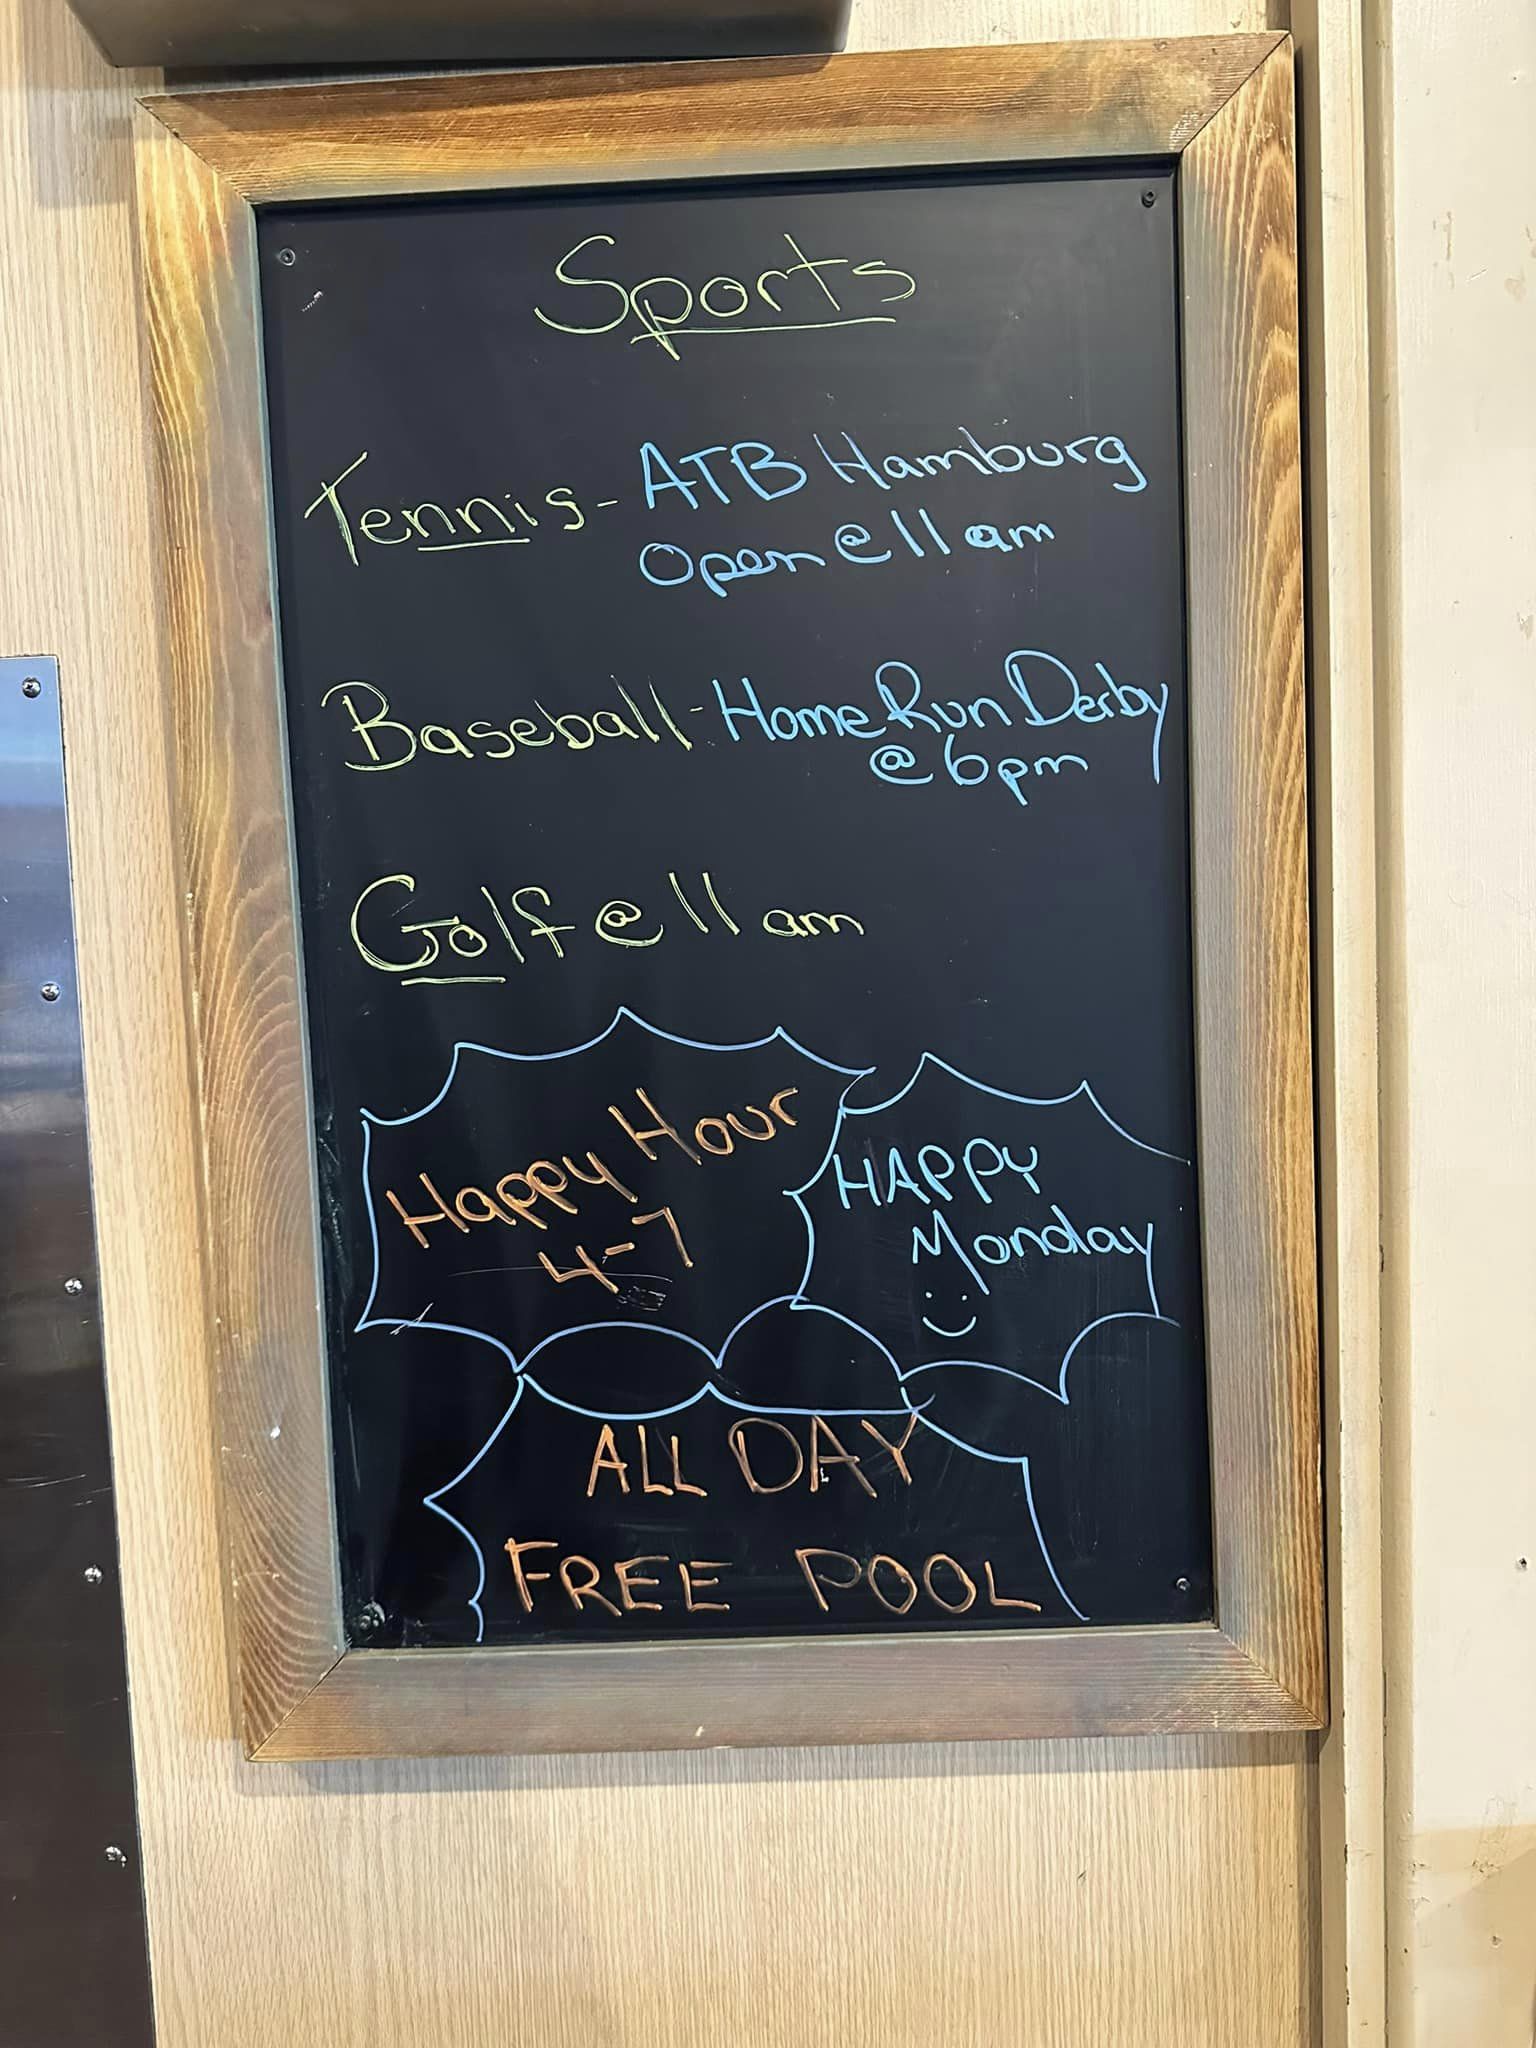 Sports
Tennis - ATB Hamburg
Open @ 11 am
Baseball - Home Run Derby
@ 6pm
Golf @ 11 am
Happy Hour
4-7
HAPPY
Monday
ALL DAY
FREE POOL